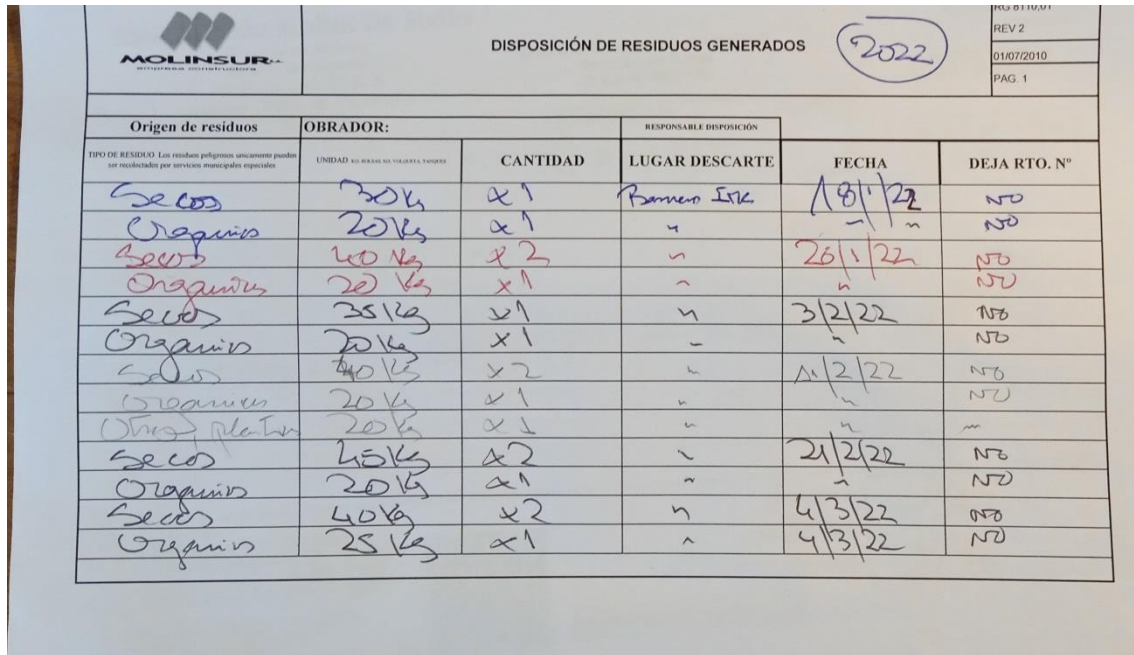 RG 8110,01
MOLINSUR S.A.
empresa constructora
DISPOSICIÓN DE RESIDUOS GENERADOS
2022
REV 2
01/07/2010
PAG. 1
Origen de residuos OBRADOR: RESPONSABLE DISPOSICIÓN
TIPO DE RESIDUO Los residuos peligrosos unicamente pueden ser recolectados por servicios municipales especiales UNIDAD KG, BOLSAS, NO. VOLQUETA, TANQUES CANTIDAD LUGAR DESCARTE FECHA DEJA RTO. Nº
Secos 30 Kg x 1 18/1/22 NO
Organicos 20 Kg x 1 " " " NO
Secos 40 Kg x 2 " 26/1/22 NO
Organicos 20 Kg x 1 " " NO
Secos 35 Kg x 1 " 3/2/22 NO
Organicos 20 Kg x 1 " " NO
Secos 40 Kg x 2 " 11/2/22 NO
Organicos 20 Kg x 1 " " NO
Otros 20 Kg x 1 " " "
Secos 45 Kg x 2 " 21/2/22 NO
Organicos 20 Kg x 1 " " NO
Secos 40 Kg x 2 " 4/3/22 NO
Organicos 25 Kg x 1 " 4/3/22 NO